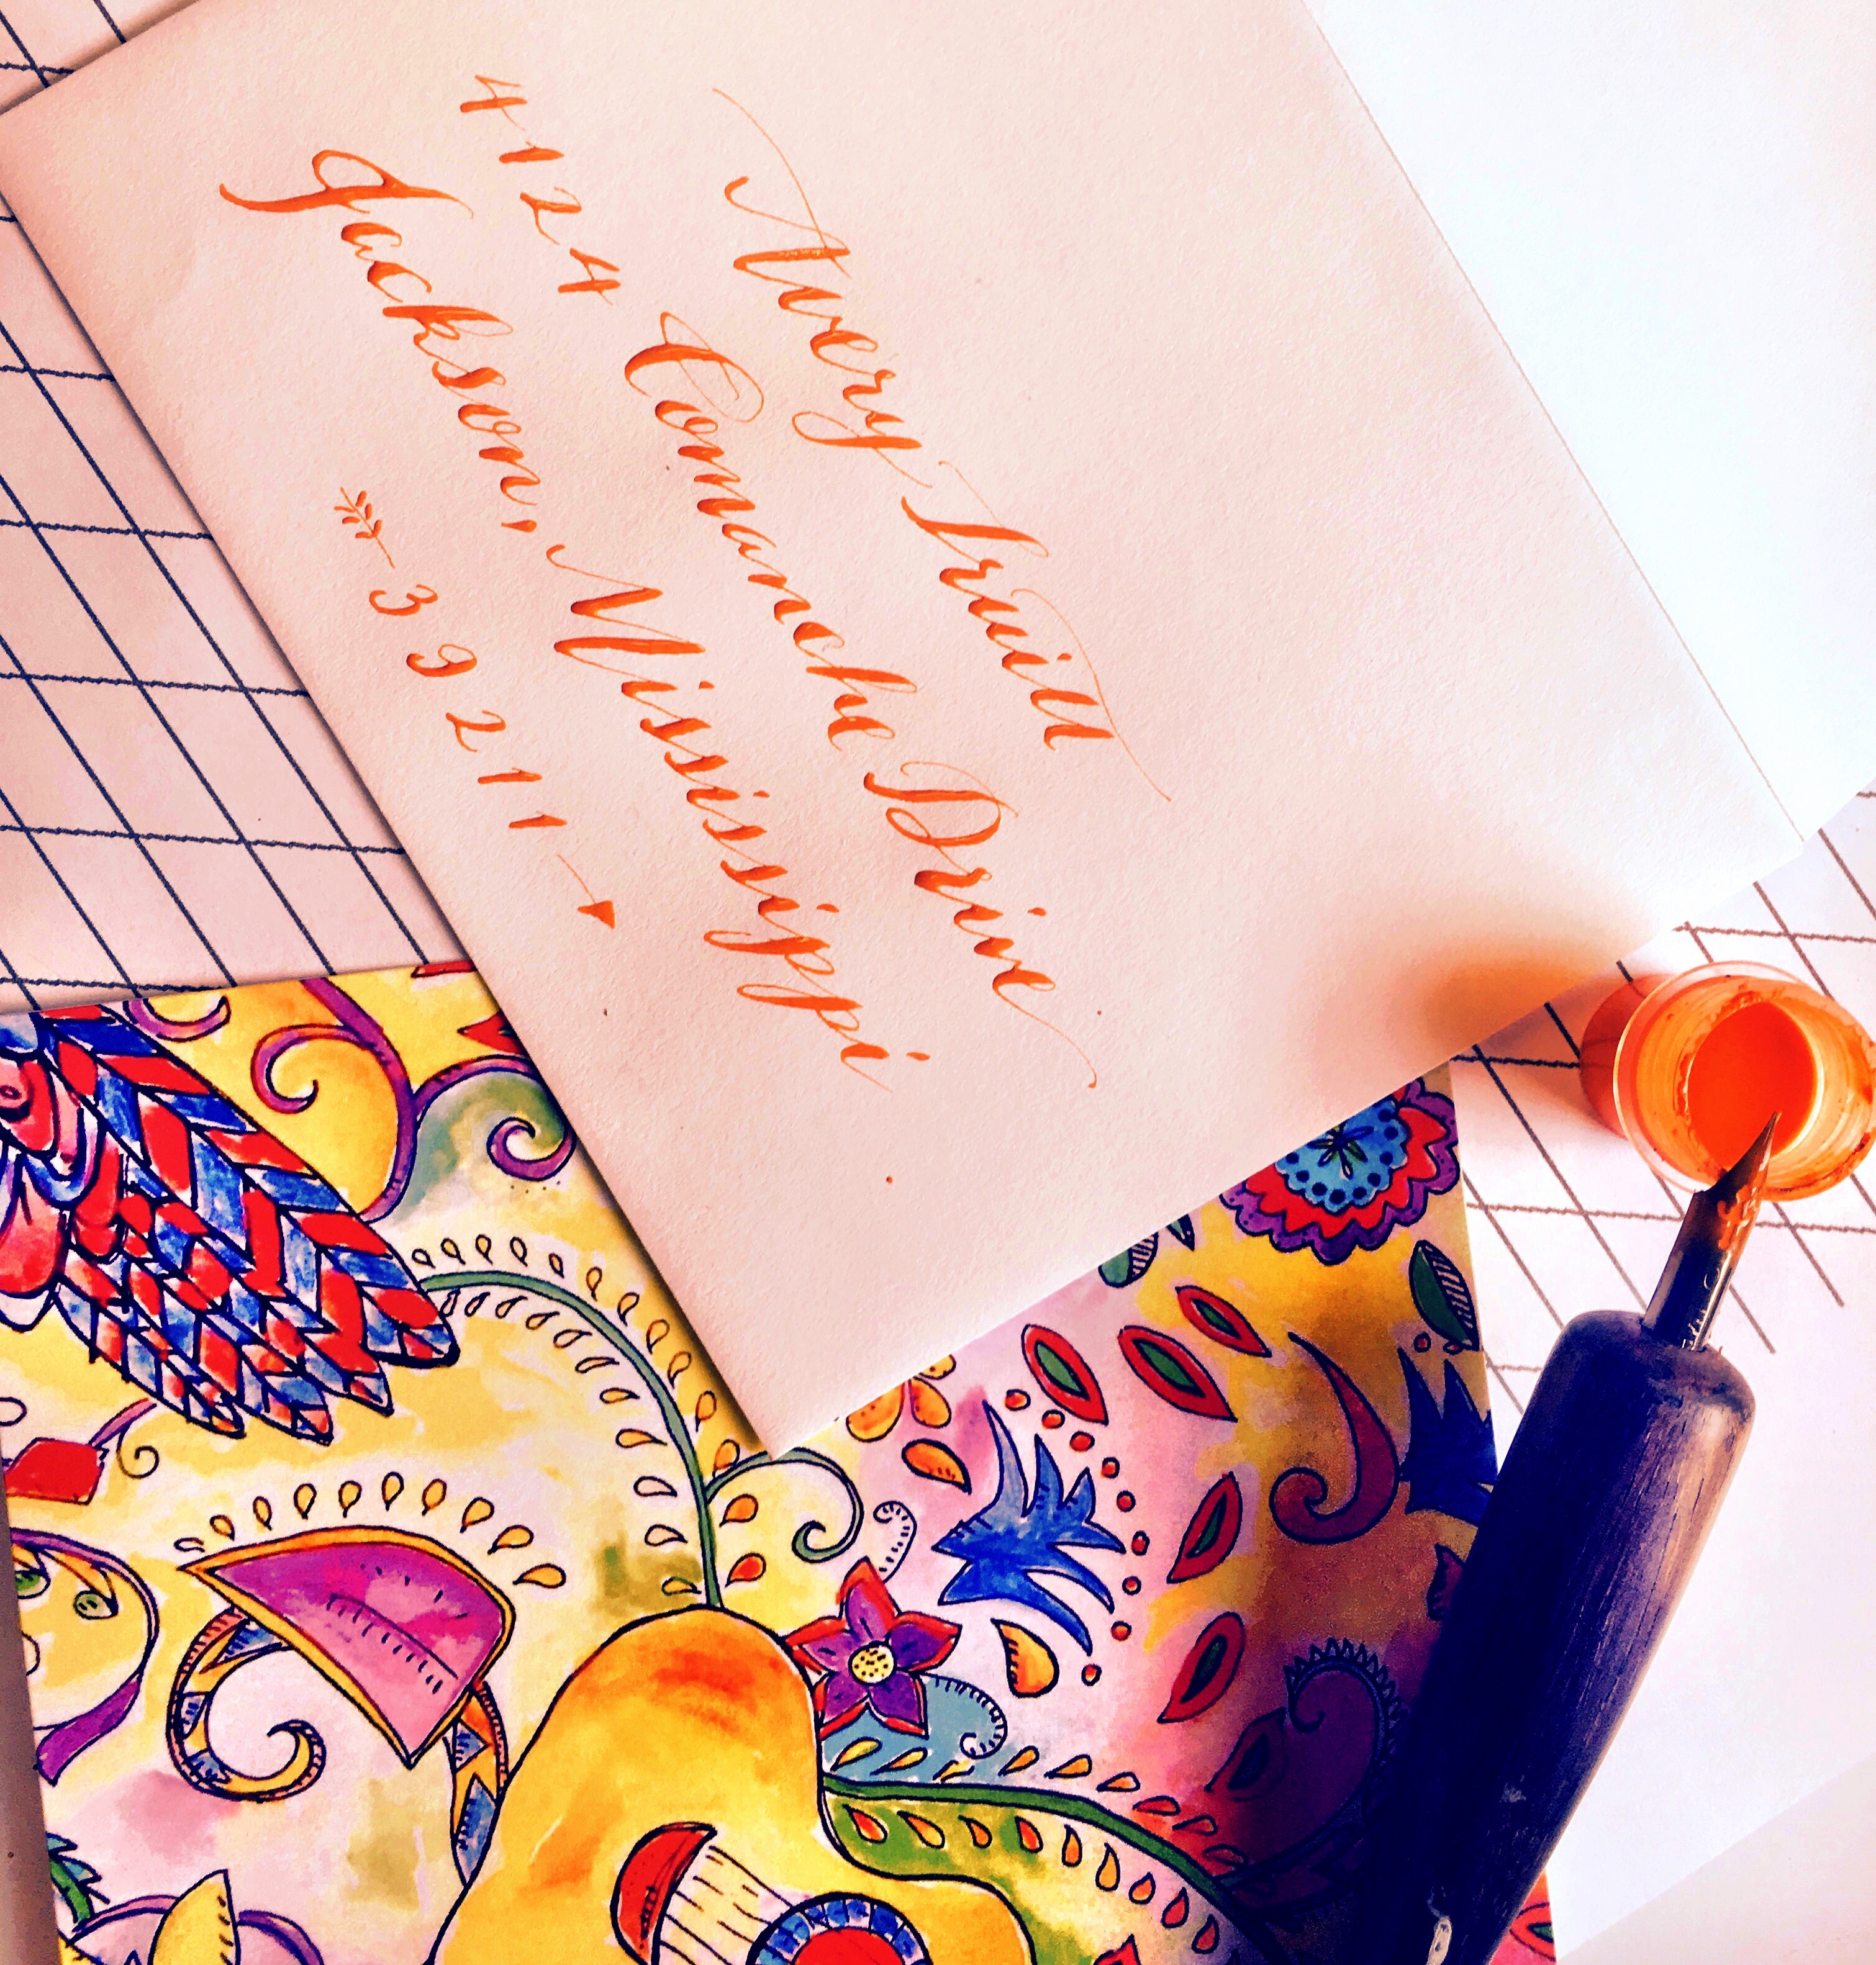 Avery Truitt
4124 Comanche Drive
Jackson, Mississippi
39211